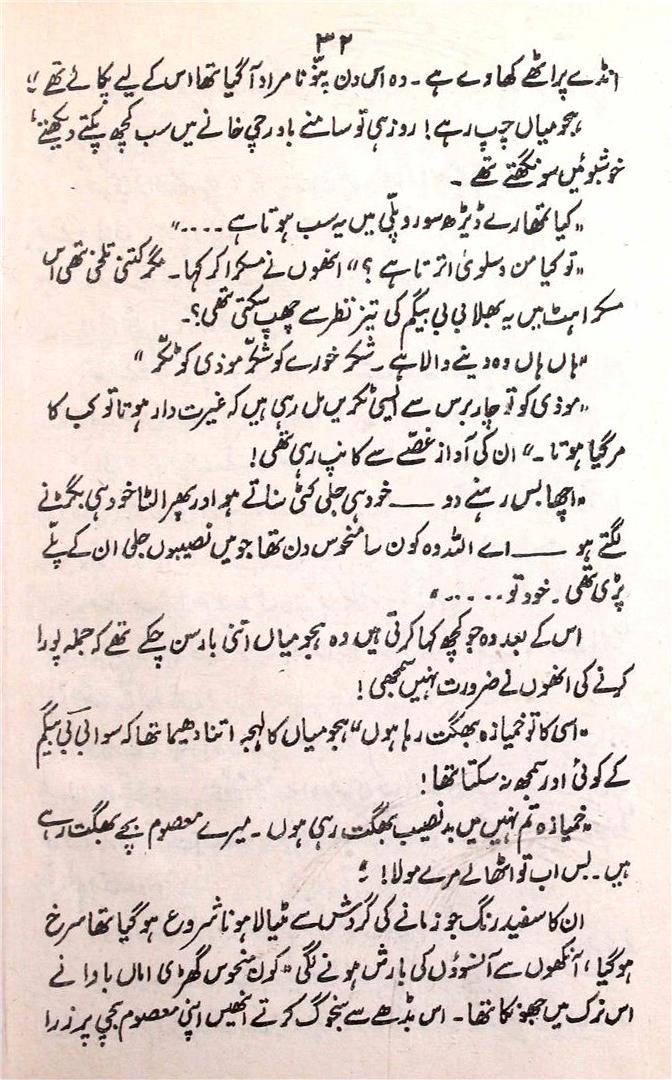 ۳۲
انڈے پراٹھے کھاوے ہے۔ وہ اس دن پنّو نامراد آگیا تھا اس کے لیے پکائے تھے!"
ہجو میاں چپ رہے! روز ہی تو سامنے باورچی خانے میں سب کچھ پکتے دیکھتے'
خوشبوئیں سونگھتے تھے۔
"کیا تمھارے ڈیڑھ سو روپلّی میں یہ سب ہوتا ہے . . . ."
"تو کیا من و سلویٰ اترتا ہے؟" انھوں نے مسکرا کر کہا۔ مگر کتنی تلخی تھی اس
مسکراہٹ میں یہ بھلا بی بی بیگم کی تیز نظر سے چھپ سکتی تھی؟۔
"ہاں ہاں وہ دینے والا ہے۔ شکر خورے کو شکّر موذی کو ٹکّر"
"موذی کو تو چار برس سے ایسی ٹکریں مل رہی ہیں کہ غیرت دار ہوتا تو کب کا
مر گیا ہوتا۔" ان کی آواز غصّے سے کانپ رہی تھی!
"اچھا بس رہنے دو —— خود ہی جلی کٹی سناتے ہو اور پھر الٹا خود ہی بگڑنے
لگتے ہو —— اے اللہ وہ کون سا منحوس دن تھا جو میں نصیبوں جلی ان کے پلّے
پڑی تھی۔ خود تو . . . . ."
اس کے بعد وہ جو کچھ کہا کرتی ہیں وہ ہجو میاں اتنی بار سن چکے تھے کہ جملہ پورا
کرنے کی انھوں نے ضرورت نہیں سمجھی!
"اسی کا تو خمیازہ بھگت رہا ہوں" ہجو میاں کا لہجہ اتنا دھیما تھا کہ سوا بی بی بیگم
کے کوئی اور سمجھ نہ سکتا تھا!
"خمیازہ تم نہیں میں بدنصیب بھگت رہی ہوں۔ میرے معصوم بچے بھگت رہے
ہیں۔ بس اب تو اٹھالے مرے مولا!"
ان کا سفید رنگ جو زمانے کی گردش سے مٹیالا ہونا شروع ہوگیا تھا سرخ
ہوگیا، آنکھوں سے آنسوؤں کی بارش ہونے لگی "کون منحوس گھڑی اماں باوا نے
اس نرک میں جھونکا تھا۔ اس بڈھے سے سنجوگ کرتے انھیں اپنی معصوم بچی پر ذرا